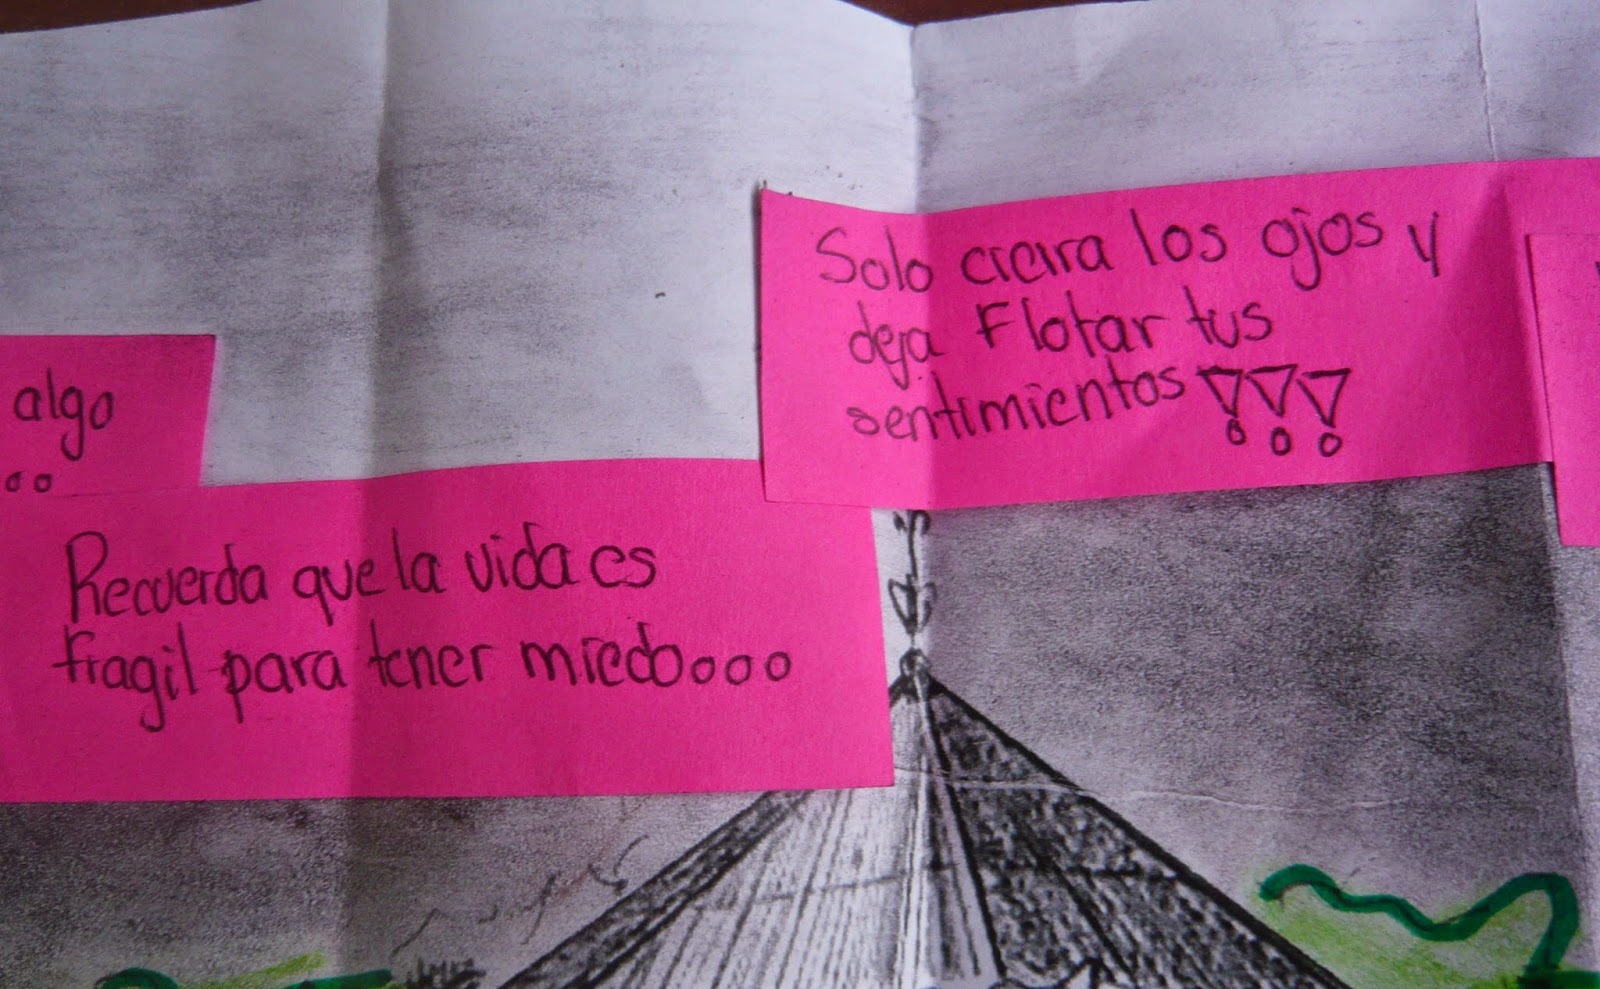 algo
...
Recuerda que la vida es
fragil para tener miedo...
Solo cierra los ojos y
deja Flotar tus
sentimientos !!!